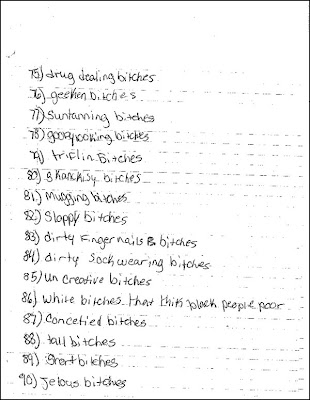 75) drug dealing bitches
76) geeken bitches
77) Suntanning bitches
78) goofy looking bitches
79) triflin Bitches
80) Skanckisy bitches
81) Mugging bitches
82) Sloppy bitches
83) dirty fingernails bitches
84) dirty Sock wearing bitches
85) un creative bitches
86) White bitches that think black people poor
87) Concetied bitches
88) tall bitches
89) Short bitches
90) Jelous bitches